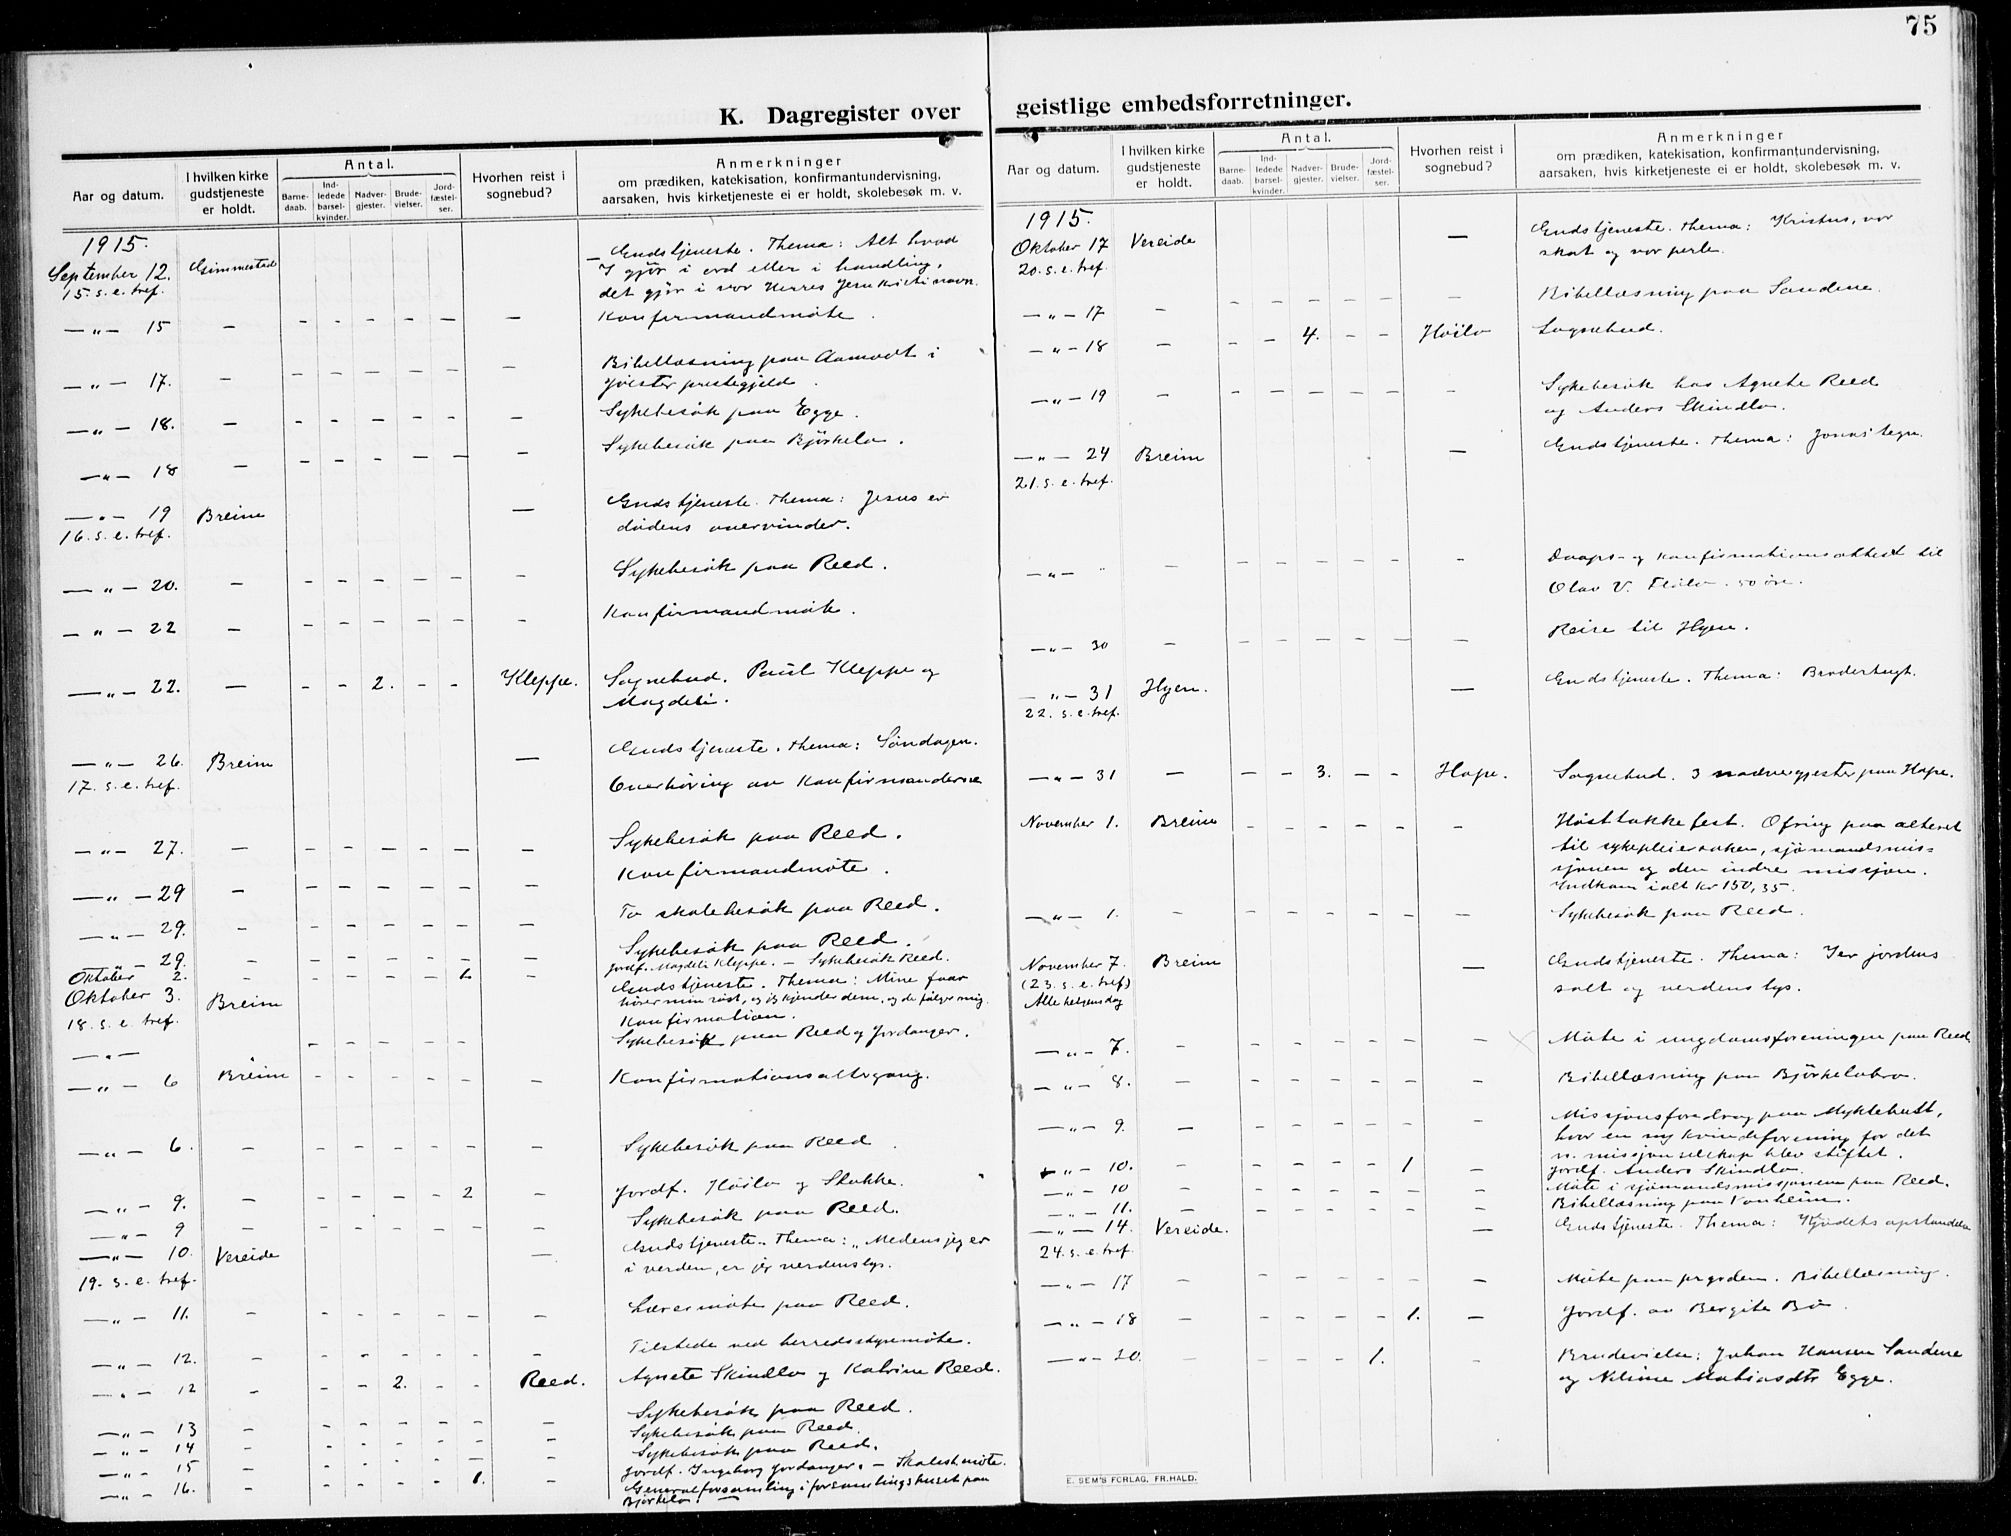 75
K. Dagregister over geistlige embedsforretninger.
Aar og datum.
I hvilken kirke gudstjeneste er holdt.
Antal.
Barnedaab.
Indledede barselkvinder.
Nadvergjester.
Brudevielser.
Jordfæstelser.
Hvorhen reist i sognebud?
Anmerkninger
om prædiken, katekisation, konfirmantundervisning,
aarsaken, hvis kirketjeneste ei er holdt, skolebesøk m. v.
1915.
September 12. Gimmestad — Gudstjeneste. Thema: Alt hvad
15. s. e. tref. I gjør i ord eller i handling,
det gjør i vor Herres Jesu Kristi navn.
— „ — 15 – – – – – – – Konfirmandmöte.
— „ — 17. – – – – – – – Bibellæsning paa Aamodt i
Jölster prestegjeld.
— „ — 18. – – – – – – – Sykebesök paa Egge.
— „ — 18 – – – – – – – Sykebesök paa Björkelo.
— „ — 19 Breim — Gudstjeneste. Thema: Jesus er
16. s. e. tref. dödens overvinder.
— „ — 20. – – – – – – – Sykebesök paa Reed.
— „ — 22 – – – – – – – Konfirmandmöte.
— „ — 22. – – – 2. – – Kleppe. Sognebud. Paul Kleppe og
Magdeli.
— „ — 26. Breim — Gudstjeneste. Thema: Söndagen.
17. s. e. tref. Overhöring av Konfirmanderne
— „ — 27. – – – – – – – Sykebesök paa Reed.
— „ — 29 – – – – – – – Konfirmandmöte.
— „ — 29. – – – – – – – To skolebesök paa Reed.
— „ — 29. – – – – – – Sykebesök paa Reed.
Oktober 2. – – – – – 1. – Jordf. Magdeli Kleppe. — Sykebesök Reed.
Oktober 3. Breim Gudstjeneste. Thema: Mine faar
18. s. e. tref. hörer min röst, og jeg kjender dem, og de fölger mig.
Konfirmation.
— „ — – – – – – Sykebesök paa Reed og Jordanger.
— „ — 6 Breim – – – – – – Konfirmationsaltergang.
— „ — 6. – – – – – – – Sykebesök paa Reed.
— „ — 9. – – – – – 2 – Jordf. Höilo og Stokke.
— „ — 9 – – – – – – – Sykebesök paa Reed.
— „ — 10. Vereide — Gudstjeneste. Thema: „Medens jeg er
19. s. e. tref. i verden, er jeg verdens lys.
— „ — 11. – – – – – – – Lærermöte paa Reed.
— „ — 12. – – – – – – – Tilstede ved herredsstyremöte.
— „ — 12 – – – – 2. – – Reed. Agnete Skindlo og Katrine Reed.
— „ — 13 – – – – – – – Sykebesök paa Reed.
— „ — 14 – – – – – – – Sykebesök paa Reed.
Sykebesök paa Reed.
— „ — 15 – – – – – 1. – Jordf. Ingeborg Jordanger. — Skolestmöte.
— „ — 16. – – – – – – Generalforsamling i forsamlingshuset paa
Björkelo.
Aar og datum.
I hvilken kirke gudstjeneste er holdt.
Antal.
Barnedaab.
Indledede barselkvinder.
Nadvergjester.
Brudevielser.
Jordfæstelser.
Hvorhen reist i sognebud?
Anmerkninger
om prædiken, katekisation, konfirmantundervisning,
aarsaken, hvis kirketjeneste ei er holdt, skolebesøk m. v.
1915.
Oktober 17 Vereide — Gudstjeneste. Thema: Kristus, vor
20. s. e. tref. skat og vor perle.
— „ — 17 – – – – – – – Bibellæsning paa Sandene.
— „ — 18 – – – 4. – – Höilo Sognebud.
— „ — 19 – – – – – – – Sykebesök hos Agnete Reed
og Anders Skindlo.
— „ — 24 Breim — Gudstjeneste. Thema: Jonas' tegn.
21. s. e. tref.
— „ — „ – – – – – – – Daaps- og konfirmationsattest til
Olav V. 50 öre.
— „ — 30 – – – – – – – Reise til Hyen.
— „ — 31 Hyen. — Gudstjeneste. Thema: Brodertugt.
22. s. e. tref.
— „ — 31 – – – 3. – – Hope. Sognebud. 3 nadvergjester paa Hope.
November 1. Breim – – – – – – Hösttakkefest. Ofring paa alteret
til sykepleiersaken, sjömandsmis=
sjonen og den indre missjon.
Indkom ialt kr 150,35.
— „ — 1. – – – – – – – Sykebesök paa Reed.
November 7. Breim — Gudstjeneste. Thema: I er jordens
(23. s. e. tref) salt og verdens lys.
Alle helgensdag
— „ — 7. – – – – – – – Möte i ungdomsforeningen paa Reed
— „ — 8. – – – – – – – Bibellæsning paa Björkelobro.
— „ — 9. – – – – – – – Missjonsforedrag paa Myklebust,
hvor en ny kvindeforening for det
n. missjonsselskap blev stiftet.
— „ — 10. – – – – – 1 – Jordf. Anders Skindlo.
— „ — 10 – – – – – – – Möte i sjömandsmissjonen paa Reed.
— „ — 11. – – – – – – – Bibellæsning paa Vonheim.
— „ — 14. Vereide. — Gudstjeneste. Thema: Kjödets opstandelse
24. s. e. tref.
— „ — 17 – – – – – – – Möte paa prgården. Bibellæsning.
— „ — 18 – – – – – 1. – Jordf. av Bergite Bö.
— „ — 20. – – – – 1. – Brudevielse: Johan Hansen Sandene
og Nilsine Matiasdtr Egge.
E. SEM'S FORLAG, FR.HALD.